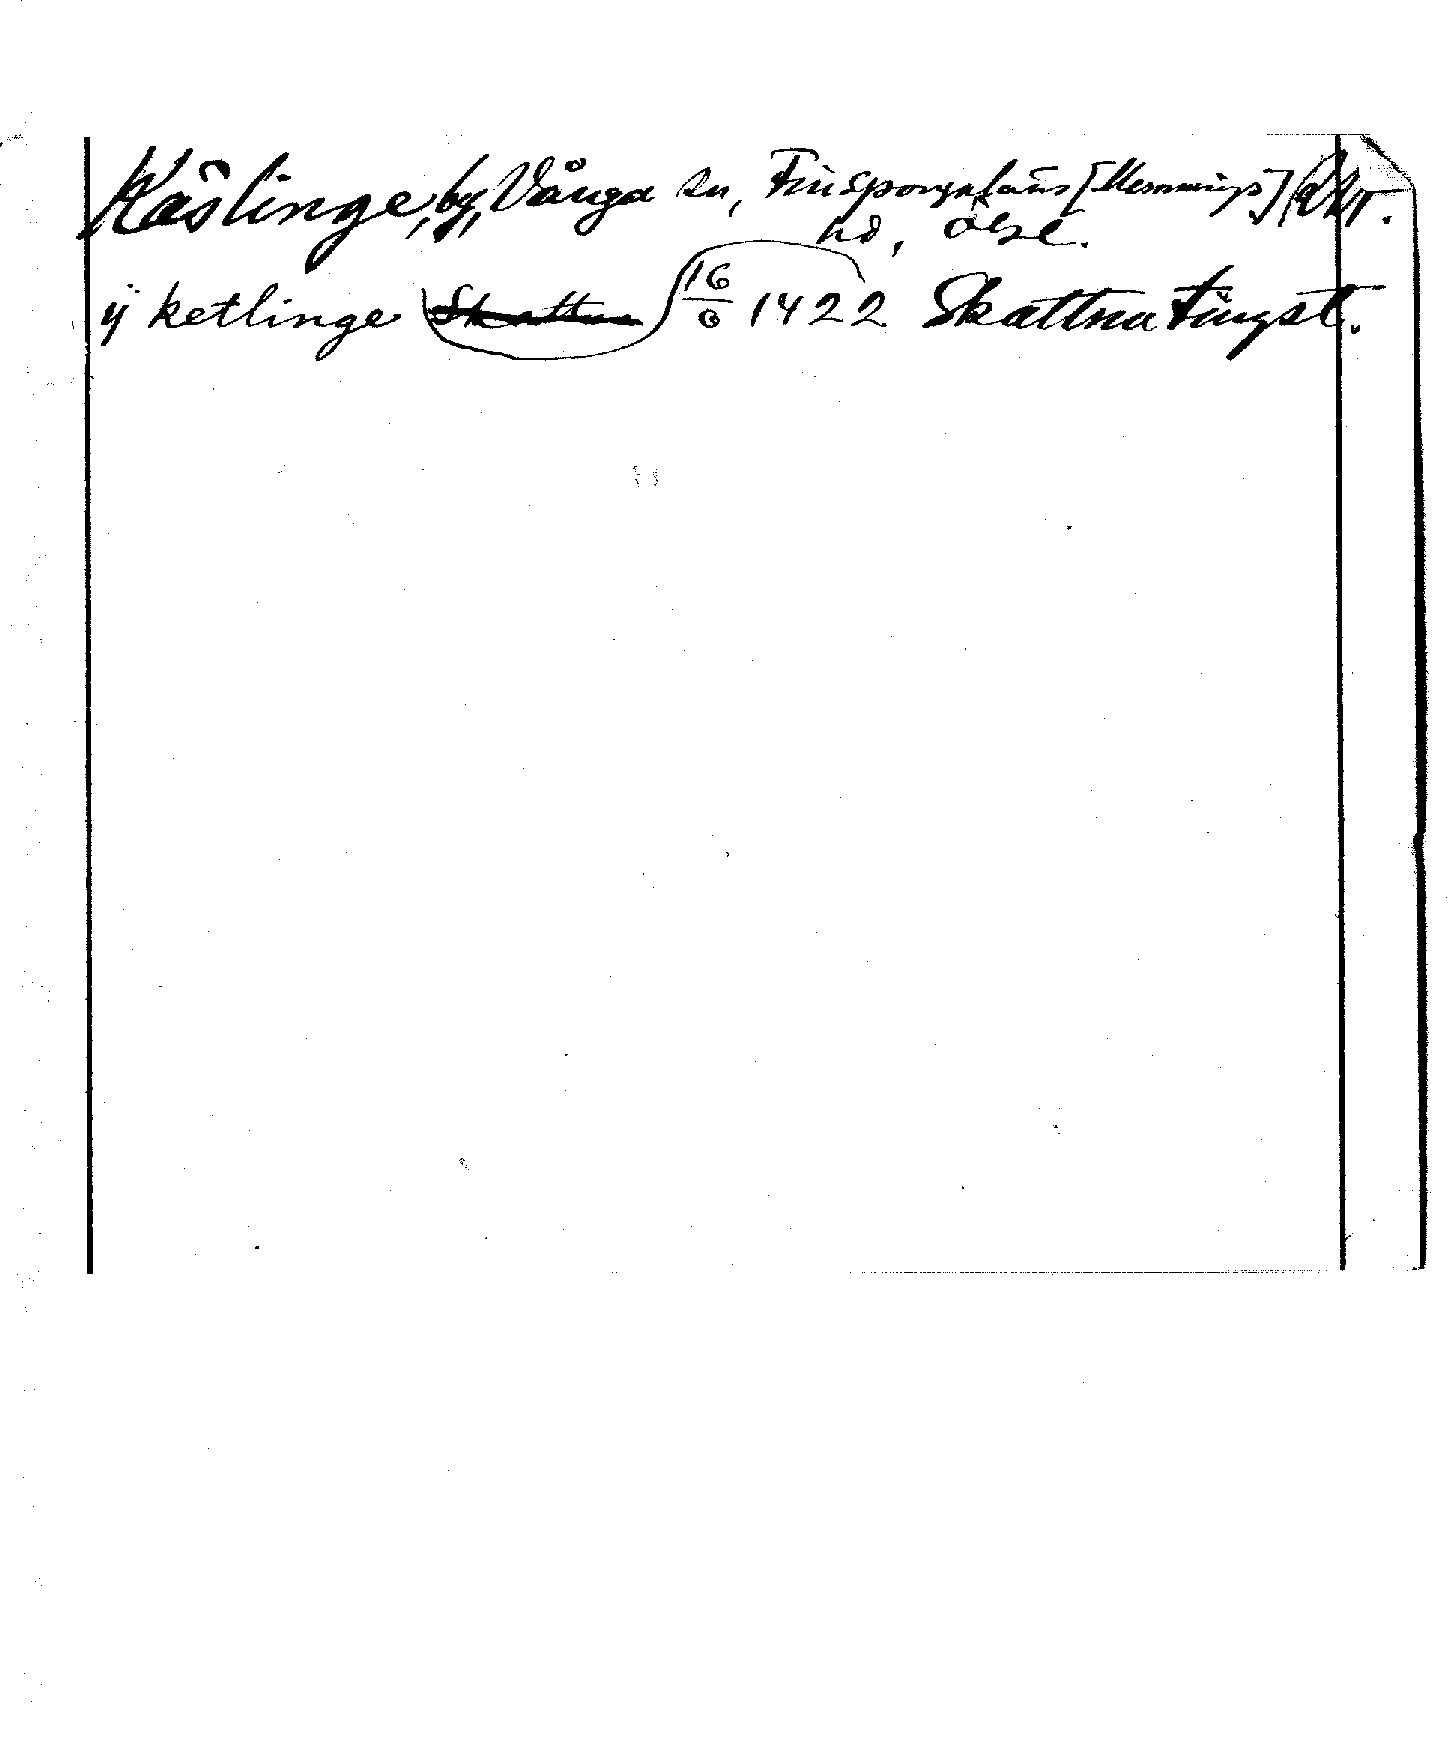 Käslinge, by, Vånga sn, Finspongaläns [Memmings] Akt.
hd, Ögl.
ÿ ketlinge Skattna 16/6 1422 Skattna tingst.